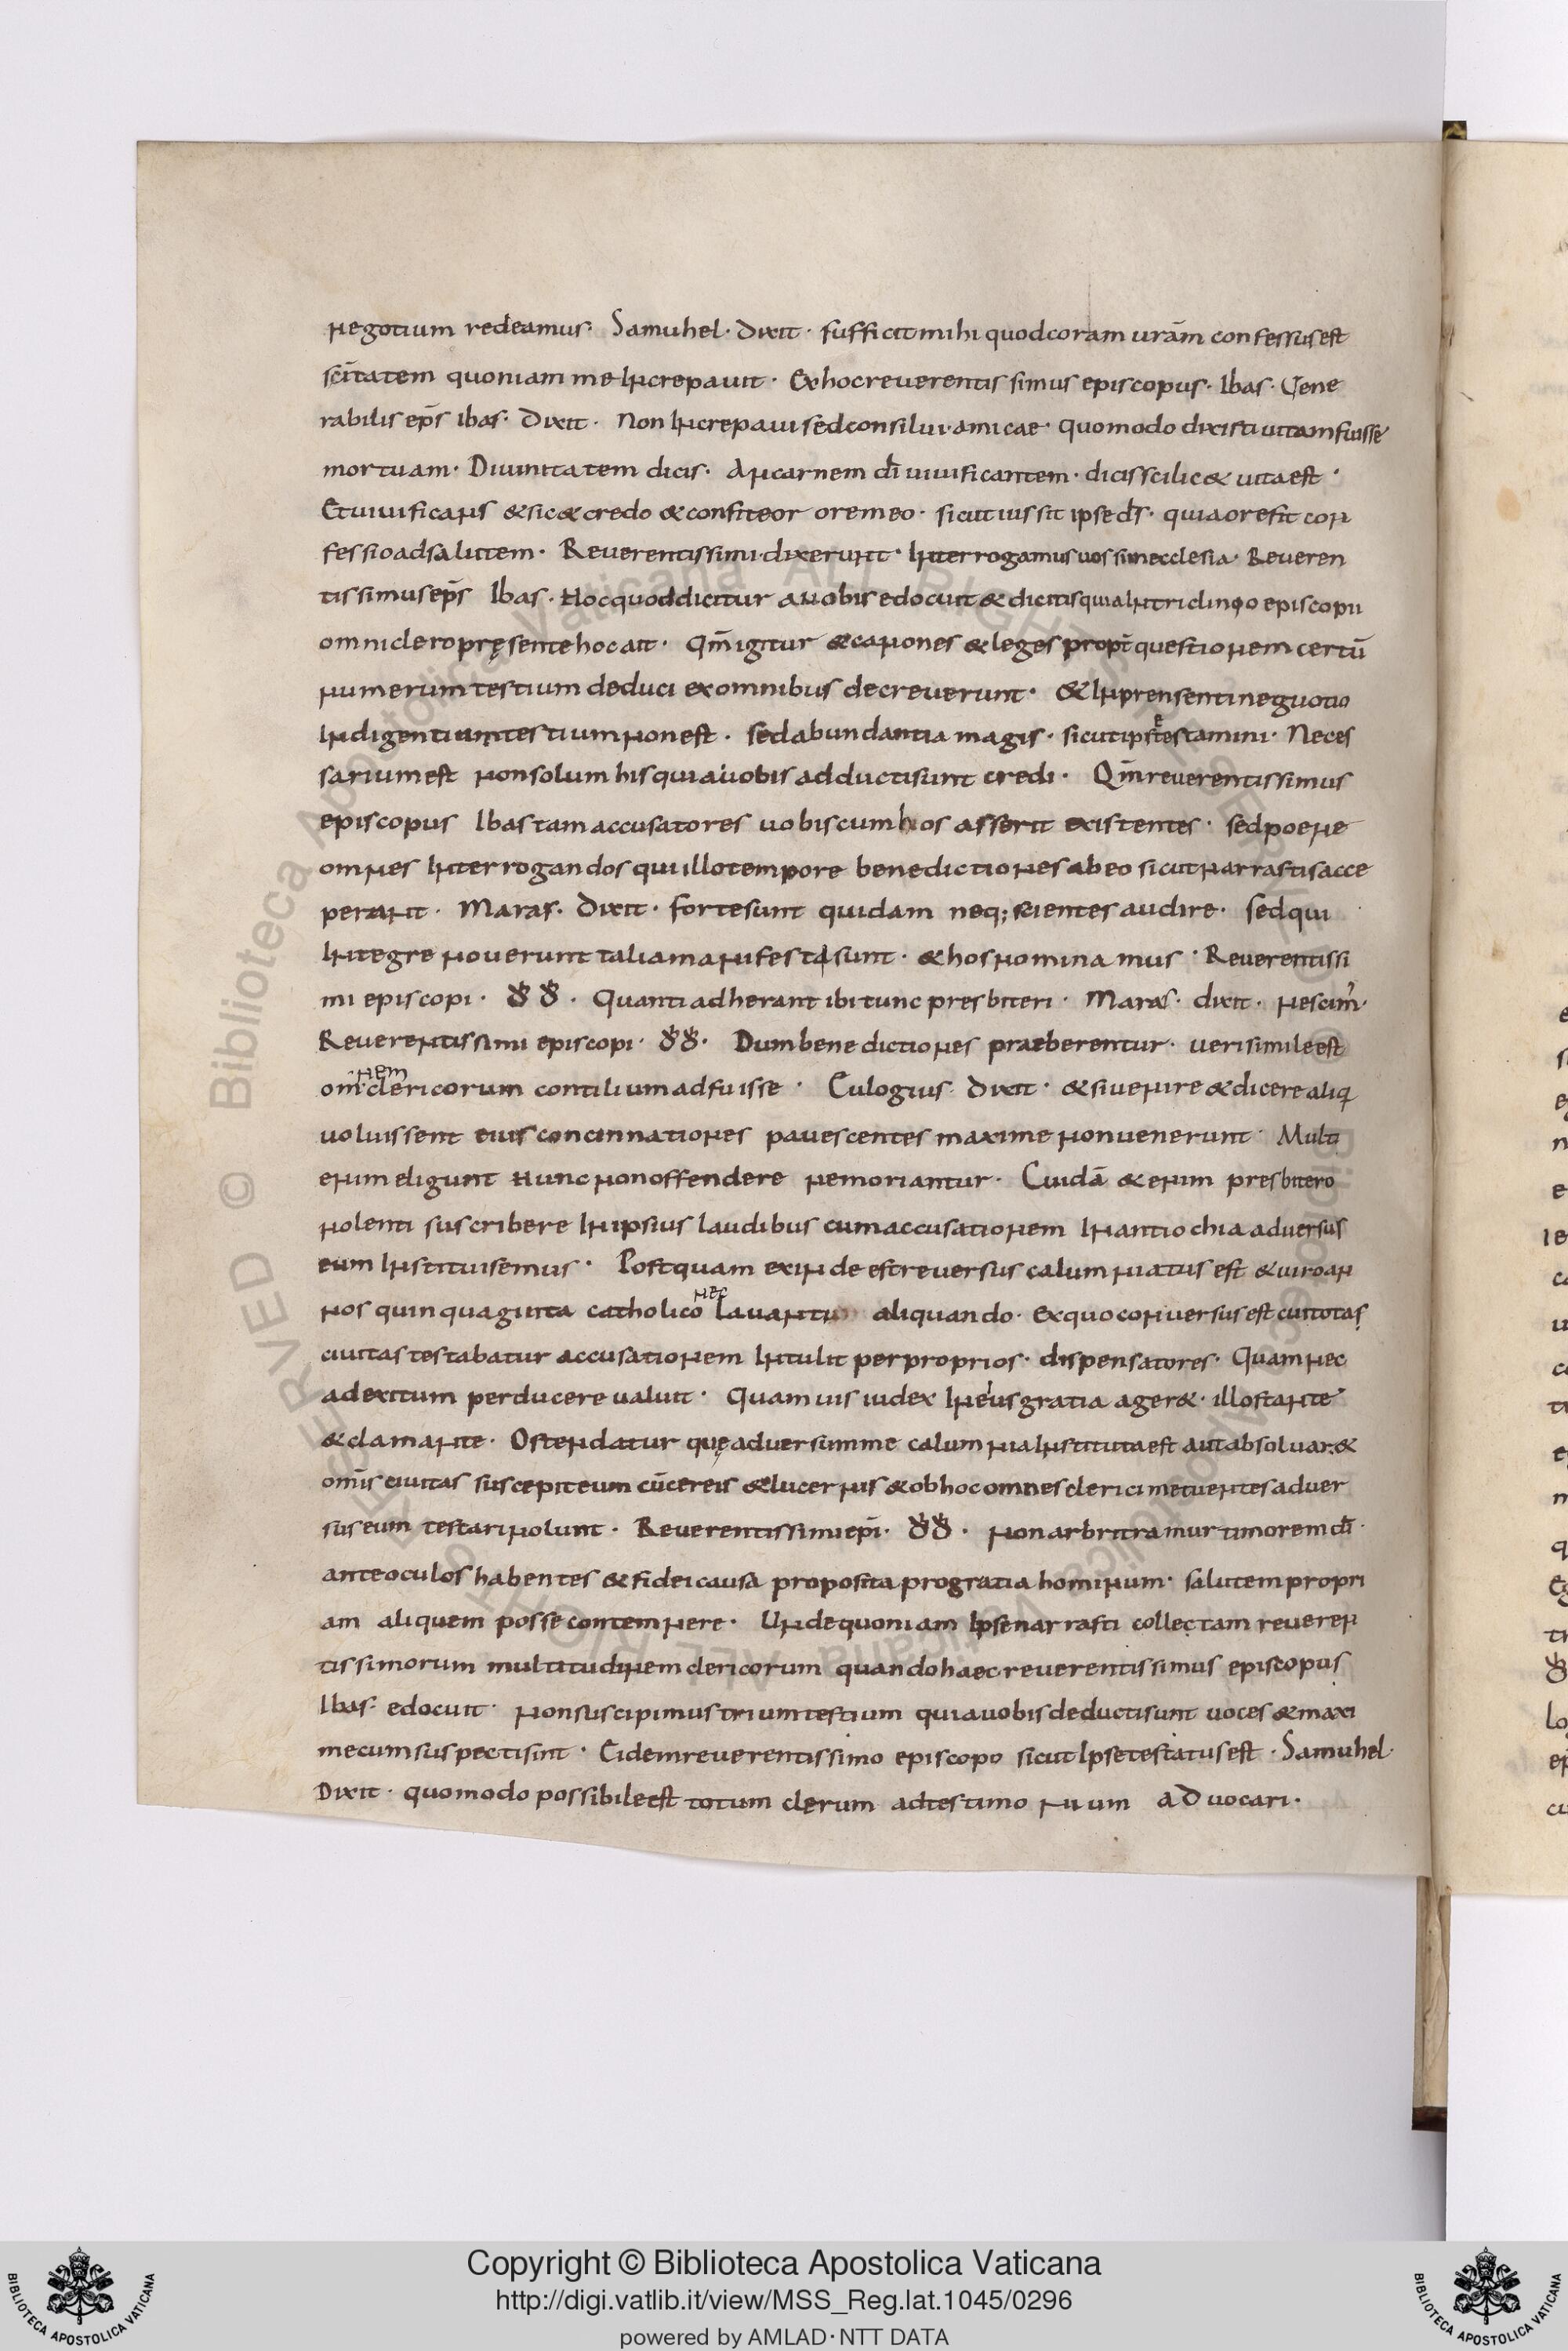 negotium redeamus· Samuhel· dixit· sufficit mihi quod coram uram̄ confessus est
sc̄itatem quoniam me increpauit· Ex hoc reuerentissimus episcopus· Ibas· Uene
rabilis ep̄s Ibas· Dixit· Non increpaui sed consilui· amicae· quomodo dixisti uitam fuisse
mortuam· Diuinitatem dicis· An carnem dī uiuificantem· dicis scilic& uita est·
Et uiuificans & sic & credo & confiteor ore meo· sicut iussit ipse d̄s· quia ore fit con
fessio ad salutem· Reuerentissimi· dixerunt· Interrogamus uos si in ecclesia· Reueren
tissimus ep̄s Ibas· Hoc quod dicitur a uobis edocuit & dicitis quia in triclinio episcopii
omni clero pręsente hoc ait· Qm̄ igitur & canones & leges propt̄ questionem certū
numerum testium deduci ex omnibus decreuerunt· & in prensenti neguotio
indigentium testium non est· sed abundantia magis· sicut ipse testamini· Neces
sarium est non solum his qui a uobis adducti sunt credi· Qm̄ reuerentissimus
episcopus Ibas tam accusatores uobiscum hos asserit existentes· sed poene
omnes interrogandos qui illo tempore benedictiones ab eo sicut narrastis acce
perant· Maras· dixit· forte sunt quidam neq; scientes audire· sed qui
integre nouerunt talia manifesta sunt· & hos nominamus· Reuerentissi
mi episcopi· ꝺꝺ· Quanti adherant ibi tunc presbiteri· Maras· dixit· nescim̄·
Reuerentissimi episcopi· ꝺꝺ· Dum benedictiones praeberentur· uerisimile est
nem
om̄ clericorum contilium adfuisse· Eulogius· Dixit· & si uenire & dicere aliq
uoluissent eius concinnationes pauescentes maxime non uenerunt· Multi
enim eligunt nunc non offendere ne moriantur· Cuidā & enim presbitero
nolenti suscribere in ipsius laudibus cum accusationem in antiochia aduersus
eum instituisemus· Postquam exinde est reuersus calumniatus est & uiro an
nec
nos quinquaginta catholico lauantu aliquando· Ex quo conuersus est cui totas
ciuitas testabatur accusationem intulit per proprios· dispensatores· Quam nec
ad exitum perducere ualuit· Quam uis iudex in eius gratia ager&· illo stante
& clamante· Ostendatur quę aduersum me calumnia instituta est aut absoluar· &
om̄is ciuitas suscepit eum cū cereis & lucernis & ob hoc omnes clerici metuentes aduer
sus eum testari nolunt· Reuerentissimi ep̄i· ꝺꝺ· non arbritramur timorem dī·
ante oculos habentes & fidei causa proposita pro gratia hominum· salutem propri
am aliquem posse contemnere· Unde quoniam ipse narrasti collectam reueren
tissimorum multitudinem clericorum quando haec reuerentissimus episcopus
Ibas· edocuit· non suscipimus trium testium qui a uobis deducti sunt uoces & maxi
me cum suspecti sint· Eidem reuerentissimo episcopo sicut ipse testatus est· Samuhel·
Dixit· quomodo possibile est totum clerum ad testimonium aduocari·
Copyright © Biblioteca Apostolica Vaticana
http://digi.vatlib.it/view/MSS_Reg.lat.1045/0296
powered by AMLAD·NTT DATA
BIBLIOTECA APOSTOLICA VATICANA
BIBLIOTECA APOSTOLICA VATICANA